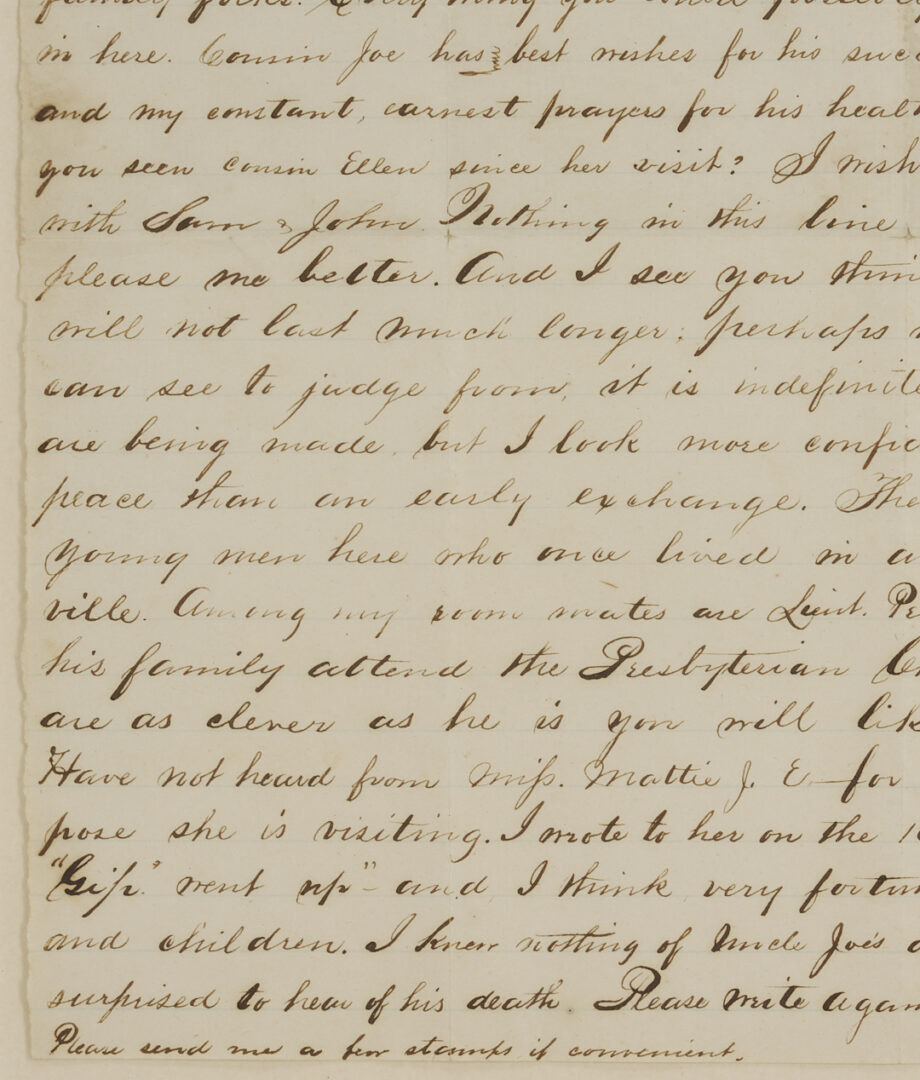 in here. Cousin Joe has my best wishes for his succ
and my constant, earnest prayers for his healt
you seen cousin Ellen since her visit? I wish
with Sam & John. Nothing in this line
please me better. And I see you thin
will not last much longer; perhaps
can see to judge from, it is indefinite
are being made, but I look more confid
peace than an early exchange. The
young men here who once lived in a
ville. Among my room mates are Lieut. P
his family attend the Presbyterian C
are as clever as he is you will lik
Have not heard from Miss. Mattie J. E—for
pose she is visiting. I wrote to her on the 1
"went up"- and I think very fortun
and children. I knew nothing of Uncle Joe's
surprised to hear of his death. Please write again
Please send me a few stamps if convenient.